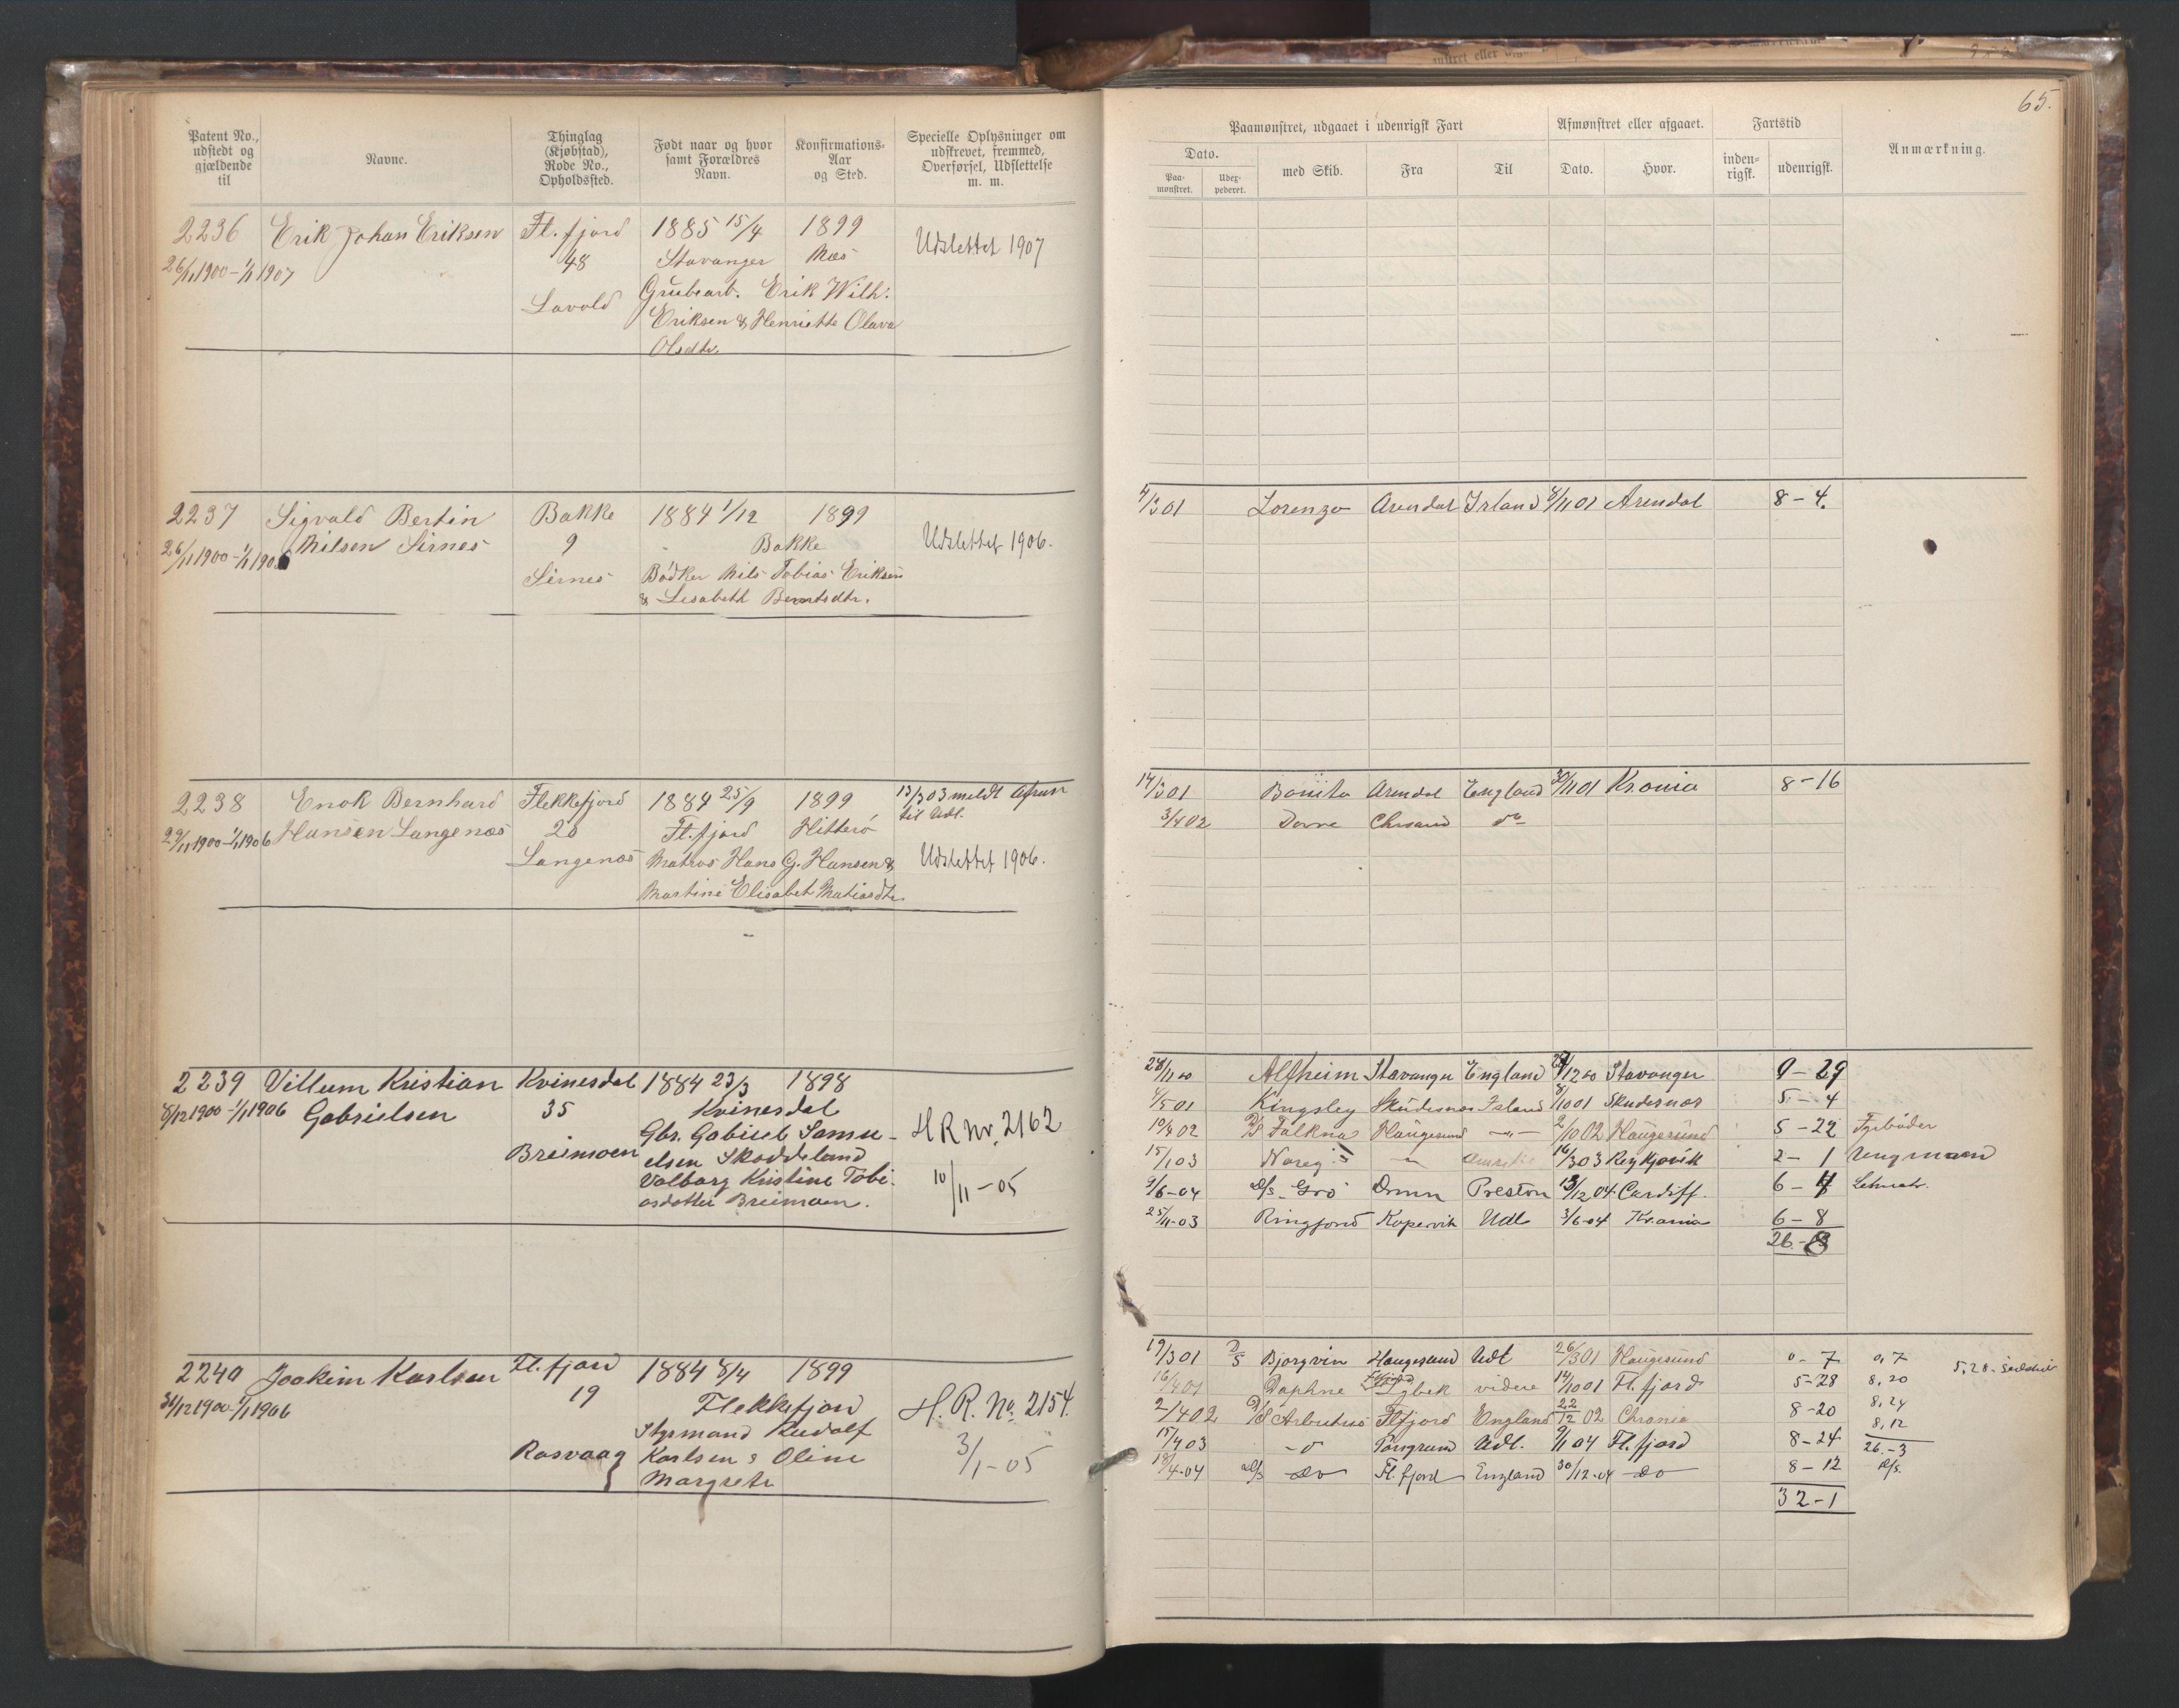 65.
Patent No., udstedt og gjældende til
Navne.
Thinglag (Kjøbstad), Rode No., Opholdssted.
Født naar og hvor samt Forældres Navn.
Konfirmations-Aar og Sted.
Specielle Oplysninger om udskrevet, fremmed, Overførsel, Udslettelse m. m.
Paamønstret, udgaaet i udenrigsk Fart
Afmønstret eller afgaaet.
Fartstid
Anmærkning.
Dato.
Paa-mønstret.
Udex-pederet.
med Skib.
Fra
Til
Dato.
Hvor.
inden-rigsk.
udenrigsk.
2236 Erik Johan Eriksen Fl. fjord 1885 15/4 1899 Udslettet 1907
26/11 1900 - 1/1 1907 48 Stavanger Næs
Lavold Grubearb. Erik Wilh.
Eriksen & Henriette Olava
Olsdtr.
2237 Sigvald Bertin Bakke 1884 1/12 1899
26/11 1900 - 1/1 1906 Nilsen Sirnes 9 Bakke Udslettet 1906.
Sirnes Bödker Nils Tobias Eriksen
& Lisabeth Berntsdtr.
4/3 01 Lorenzo Arendal Irland 8/11 01 Arendal 8-4.
2238 Enok Bernhard Flekkefjord 1884 25/9 1899 13/3 03 meldt
29/11 1900 - 1/1 1906 Hansen Langenæs 20 Fl. fjord Hitterö til Udl.
Langenæs Matros Hans G. Hansen & Udslettet 1906.
Martine Elisabet Matiasdtr
14/3 01 Bonita Arendal England 30/11 01 Kr.ania 8-16
3/4 02 Dovre Chrsand do
2239 Villum Kristian Kvinesdal 1884 23/3 1898
8/12 1900 - 1/1 1906 Gabrielsen 35 Kvinesdal
Breimoen Gbr. Gabriel Samu- H R Nr. 2162
elsen Skoddeland
Valborg Kristine Tobi- 10/11-05
asdatter Breimoen.
28/11 00 Alfheim Stavanger England 27/12 00 Stavanger 0-29
4/5 01 Kingsley Skudesnæs Island 8/10 01 Skudesnæs 5-4
10/4 02 D/S Falkna Haugesund -"- 2/10 02 Haugesund 5-22 Fyrböder
15/1 03 Noreg -"- 16/3 03 Reykjavik 2-1 Ungmand
3/6-04 D/s Gro Preston 13/12 04 Cardiff. 6-4 Letmatr.
25/11-03 Ringfjord Kopervik Udl 3/6-04 Kr.ania 6-8
26-8
2240 Joakim Karlsen Fl. fjord 1884 8/4 1899
31/12 1900 - 1/1 1906 19 Flekkefjord H. R. No. 2154.
Styrmand Rudolf
Rasvaag Karlsen & Oline 3/1-05
Margrete
19/3 01 D/S Bjorgvin Haugesund Udl 26/3 01 Haugesund 0-7 0,7
16/4 01 Daphne videre 14/10 01 Fl. fjord 5-28 8,20 5,28
2/4 02 D/S Arbutus Flfjord England 22/12 02 Chrania 8-20 8,24
15/4 03 -o Porsgrund Udl. 9/1 04 Fl. fjord 8-24 8,12
18/4-04 D/s do Fl. fjord England 30/12-04 do 8-12 26-3
D/s.
32-1